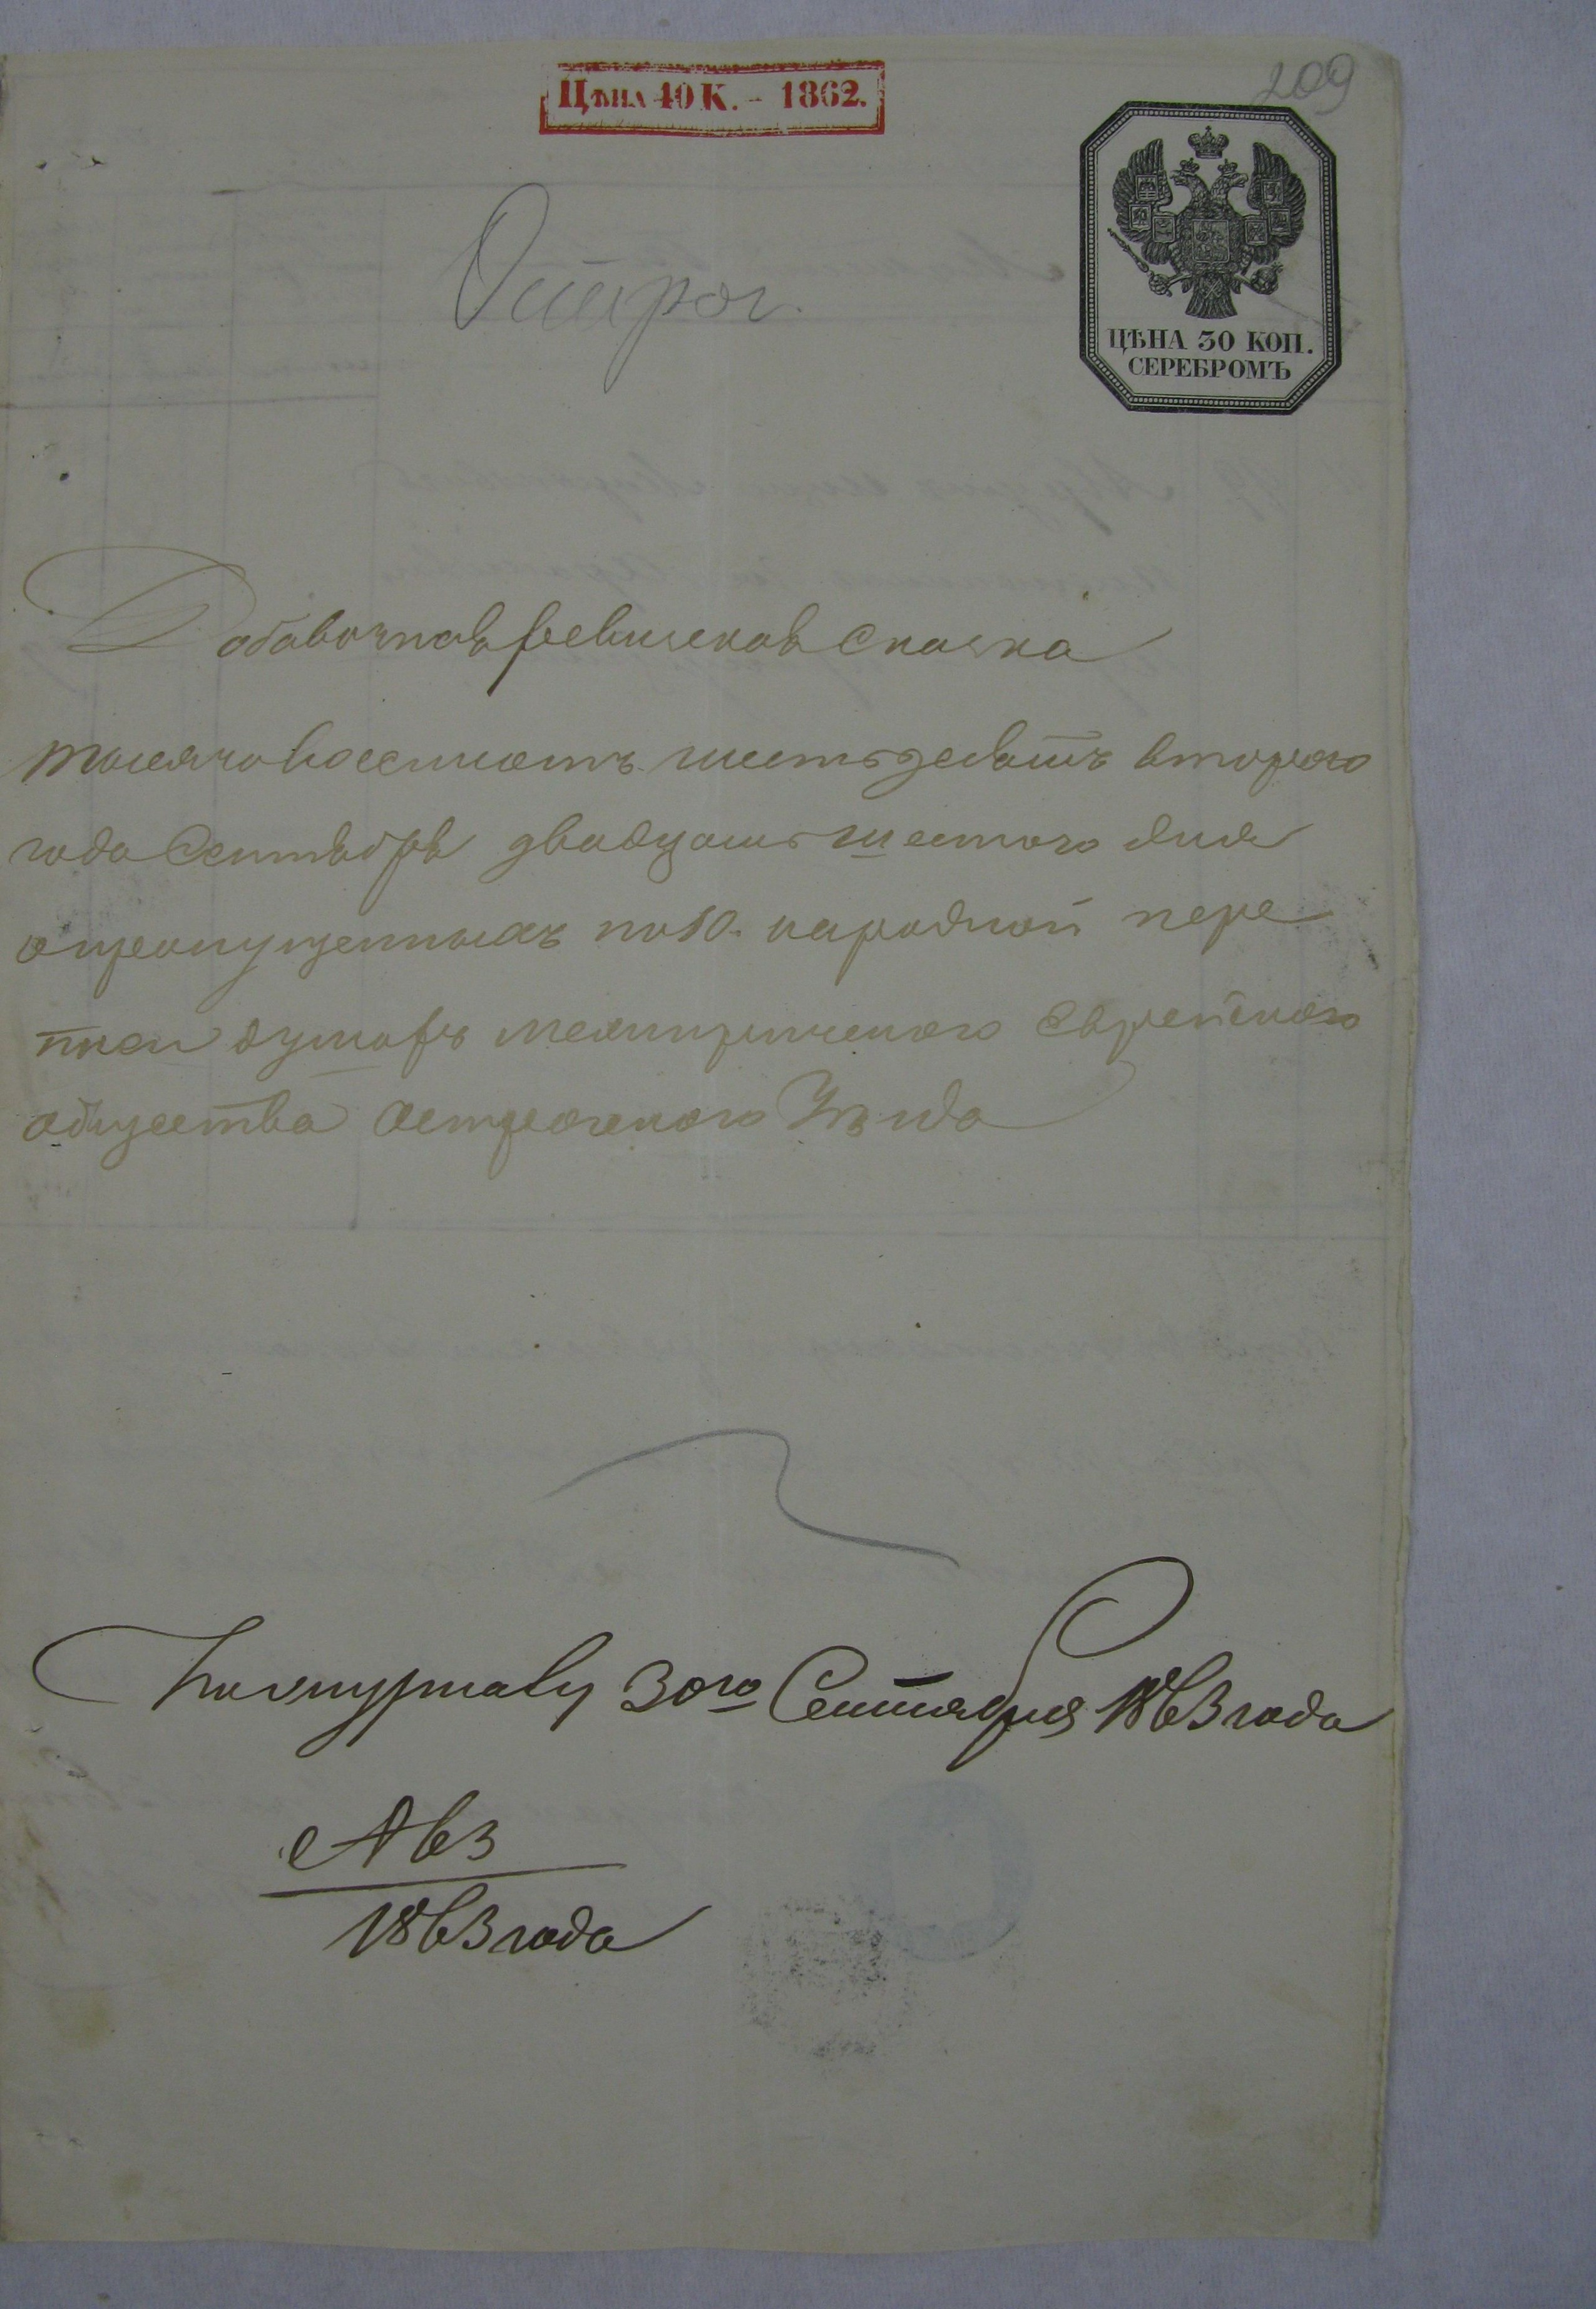 209
Цѣна 40 К. - 1862.
ЦѢНА 30 КОП.
СЕРЕБРОМЪ
Острог.
Добавочная ревизская сказка
тысяча восемьсотъ шестьдесятъ второго
года Сентября двадцать шестого дня
о пропущенныхъ по 10. народной пере
писи душахъ Межиричского Еврейского
общества Острожского Уѣзда
По журналу 30го Сентября 1863 года
1863 года